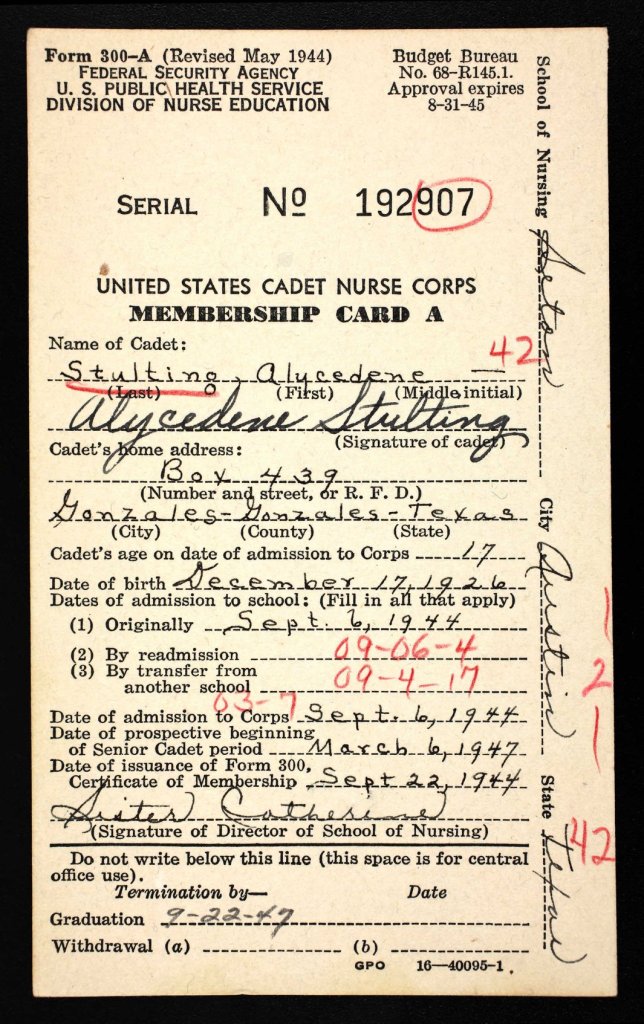 Form 300-A (Revised May 1944)
FEDERAL SECURITY AGENCY
U. S. PUBLIC HEALTH SERVICE
DIVISION OF NURSE EDUCATION
Budget Bureau
No. 68-R145.1.
Approval expires
8-31-45
SERIAL No 192907
UNITED STATES CADET NURSE CORPS
MEMBERSHIP CARD A
Name of Cadet:
42
Stulting, Alycedene —
(Last) (First) (Middle initial)
Alycedene Stulting
(Signature of cadet)
Cadet's home address:
Box 439
(Number and street, or R. F. D.)
Gonzales-Gonzales-Texas
(City) (County) (State)
Cadet's age on date of admission to Corps 17
Date of birth December 17, 1926
Dates of admission to school: (Fill in all that apply)
(1) Originally Sept. 6, 1944
(2) By readmission 09-06-4
(3) By transfer from
another school 09-4-17
03-7
Date of admission to Corps Sept. 6, 1944
Date of prospective beginning
of Senior Cadet period March 6, 1947
Date of issuance of Form 300,
Certificate of Membership Sept 22, 1944
Sister Catherine
(Signature of Director of School of Nursing)
Do not write below this line (this space is for central
office use).
Termination by— Date
Graduation 9-22-47
Withdrawal (a) (b)
GPO 16—40095-1
School of Nursing Seton City Austin State Texas
1
2
1
42